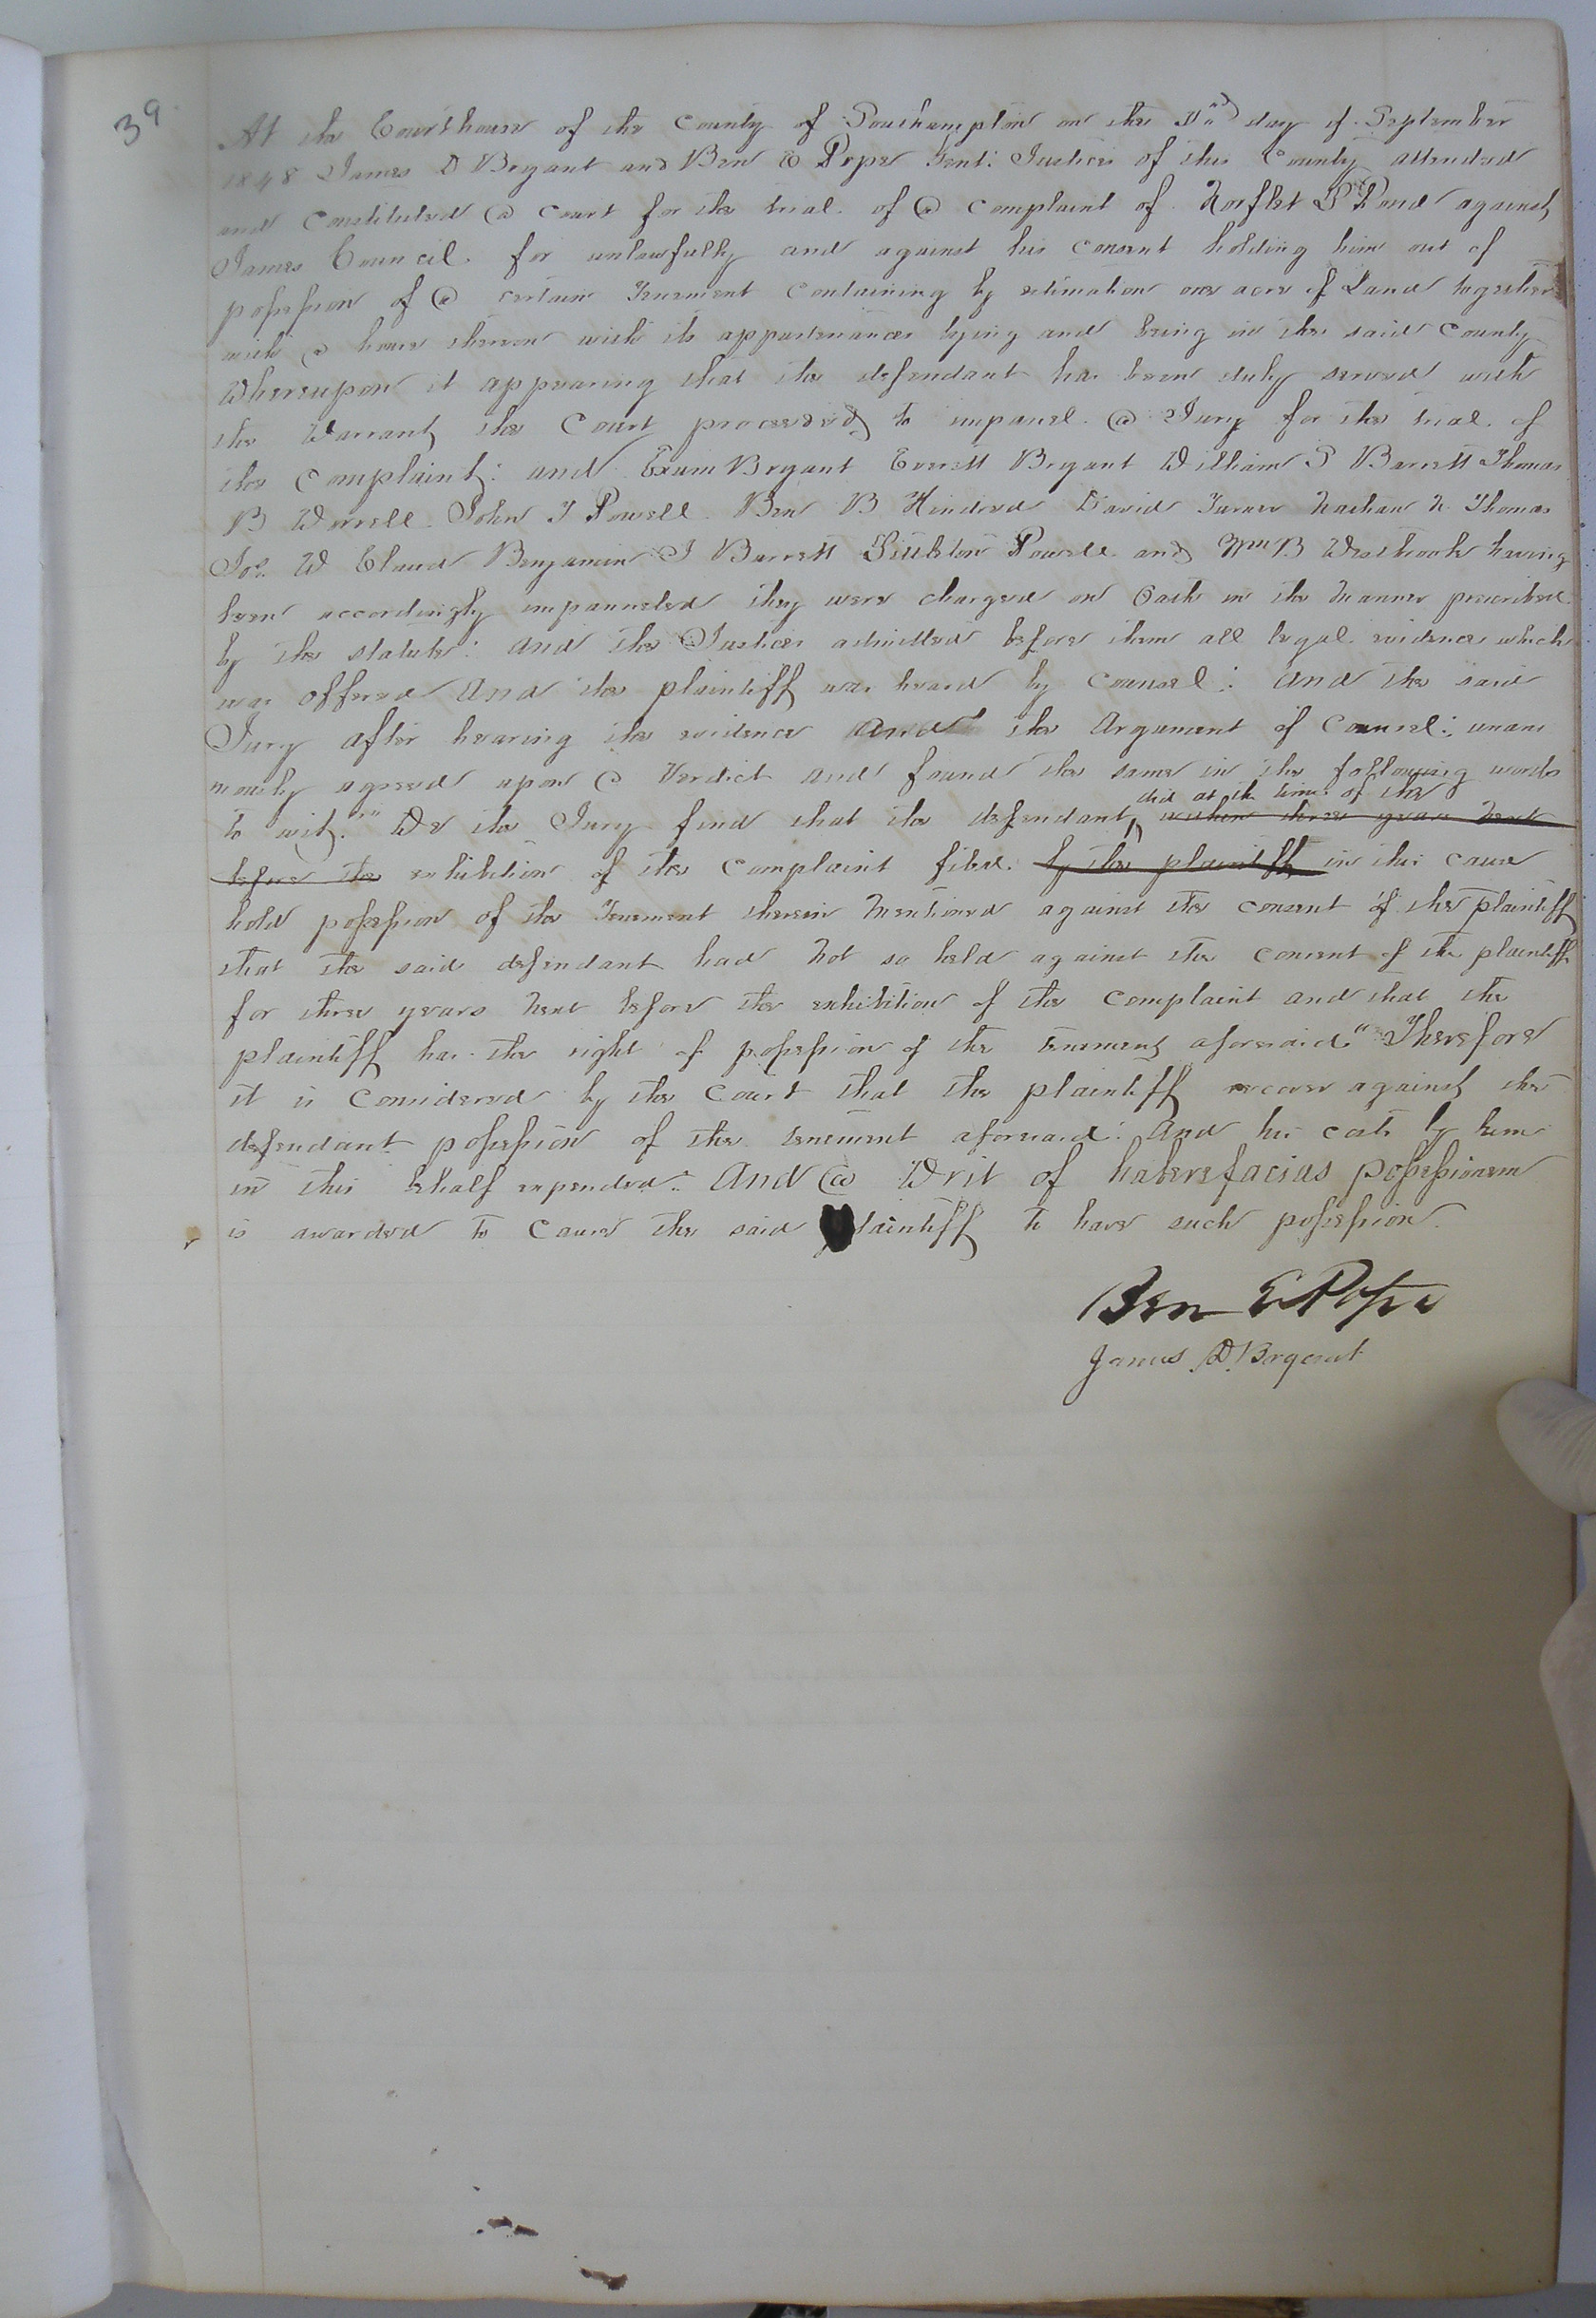 39
At the Courthouse of the County of Southampton on the day of September
1848 James D Bryant and Ben E Pope Gent: Justices of this County attended
and Constituted a court for the trial of a complaint of Norflet P Pond against
James Council. for unlawfully and against his consent holding him out of
possession of a certain Tenement containing by estimation one acre of Land together
with a house thereon with its appurtenances lying and being in the said County
Whereupon it appearing that the defendant has been duly served with
the Warrant, the Court proceeded to impanel a Jury for the trial of
the Complaint: and Exum Bryant Everett Bryant William P Barrett Thomas
B Worrell John T Powell Ben B Kindred David Turner Nathan N Thomas
Jos. W Claud Benjamin J Barrett Powell and Wm B Westbrook having
been accordingly impanneled they were charged on Oath in the Manner prescribed
by the statute: and the Justices admitted before them all legal evidence which
was offered And the plaintiff was heard by Counsel: And the said
Jury after hearing the evidence and the Argument of Counsel: unani
mously agreed upon a Verdict and found the same in the following words
did at the time of the
to wit: "We the Jury find that the defendant, within three years next
before the exhibition of the Complaint filed. by the plaintiff in this cause
hold possession of the Tenement therein Mentioned against the consent of the plaintiff
that the said defendant had Not so held against the consent of the plaintiff
for three years Next before the exhibition of the Complaint and that the
plaintiff has the right of possession of the tenement aforesaid" Therefore
it is Considered by the Court that the plaintiff recover against the
defendant possession of the tenement aforesaid: And his costs by him
in this behalf expended: And a Writ of haberefacias possessionem
is awarded to cause the said plaintiff to have such possession.
Ben E Pope
James D. Bryant